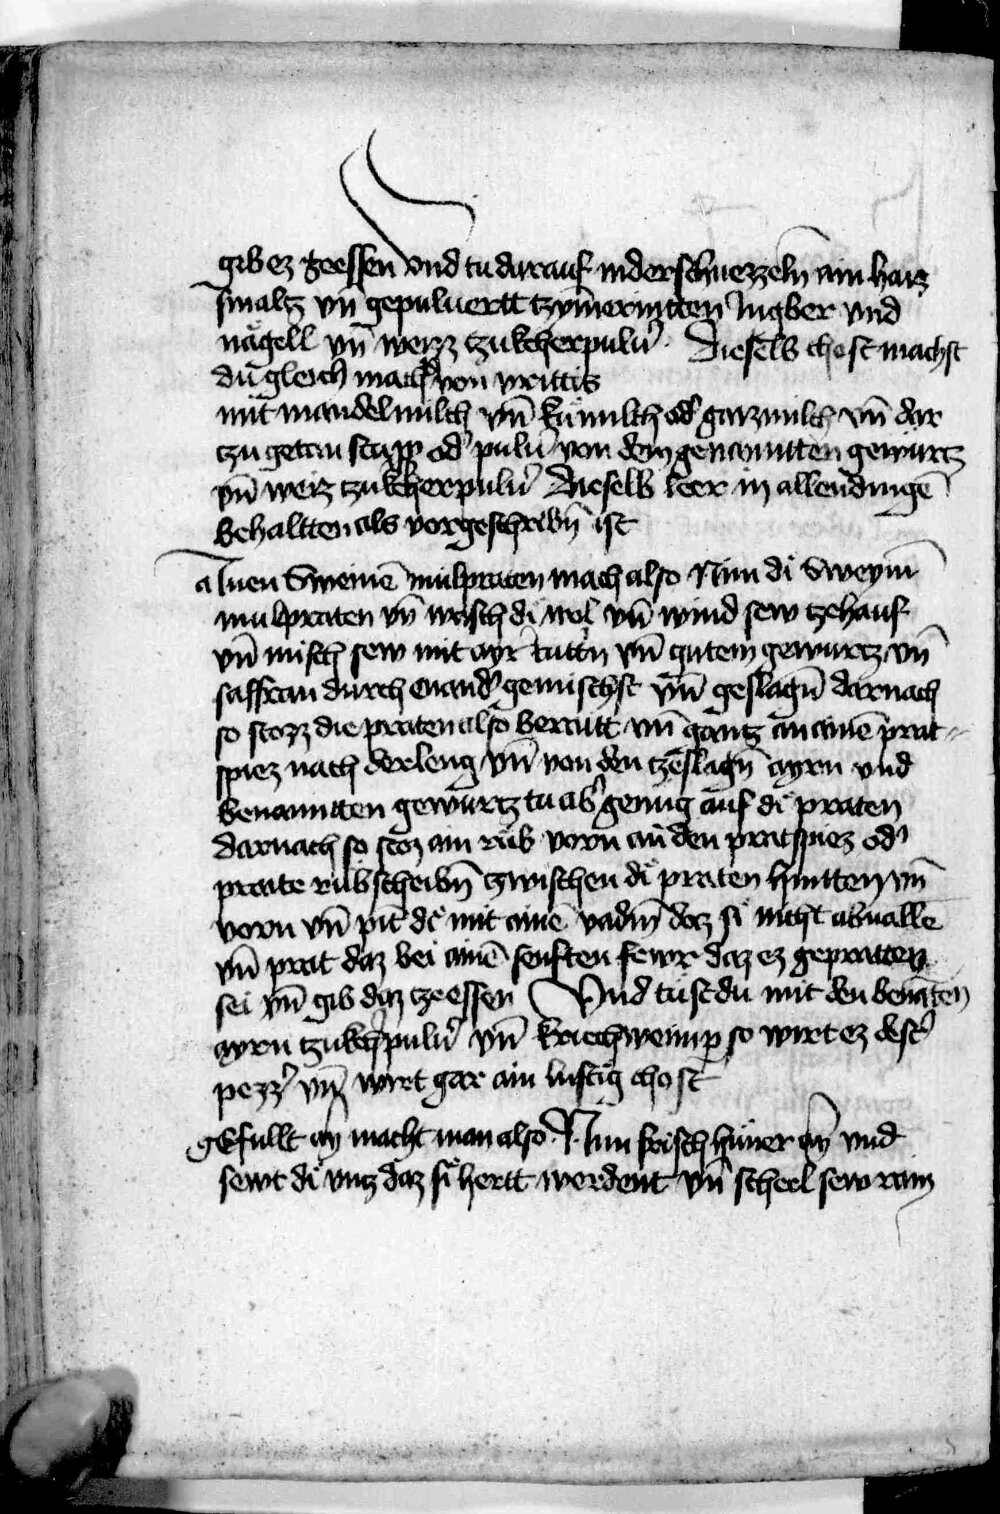 gib ez zeessen Vnd tu darauf in der schuezzeln ain haiz
smaltz vn̄ gepuluertt tzym̄erintten Ingber vnd
nägell vn̄ weizz tzukcherpulu͛ . Dieselb chost machst
du gleich mach von vrittis
mit mandelmilch vn̄ kuͤmilch od͛ gaizmilch vn̄ dar
tzu getan stupp od͛ pulu͛ von dem genanntten gewürtz
vn̄ weiz tzukcherpulu͛ Dieselb leer in allen dingē
behaltten als vorgeschribn̄ ist
aInen Sweinē mulpraten mach also Nim di Sweynn̄
mulpraten vn̄ wasch di wol vn̄ wind sew tzehauf
vn̄ misch sew mit ayr tuttn̄ vn̄ gutem gewurtz vn̄
saffran durch enand͛ gemischst vn̄ geslagn̄ darnach
so stozz die praten also beraitt vn̄ gantz an ainē prat-
spiez nach der leng vn̄ von den tzeslagn̄ ayrn vnd
benanntten gewürtz tu ab͛ genug auf di praten
darnach so stoz ain rüb vorn an den pratspiez od͛
praite rübscheibn̄ tzwischen di praten hintten vn̄
vorn vn̄ pīt di mit ainē vadm̄ daz si nicht abuallē
vn̄ prat daz bei ainē senften fewr daz ez gepratten
sei vn̄ gib daz tzeessen Vnd tust du mit den benāten
ayrn tzukch͛pulu͛ vn̄ kriechweinp̱ so wirt ez dest͛
pezz͛ vn̄ wirt gar ain lustig chost
gEfullt ay macht man also . Nim frisch hüner ay vnd
sewt di vntz daz si hertt werdent vn̄ scheel sew rain